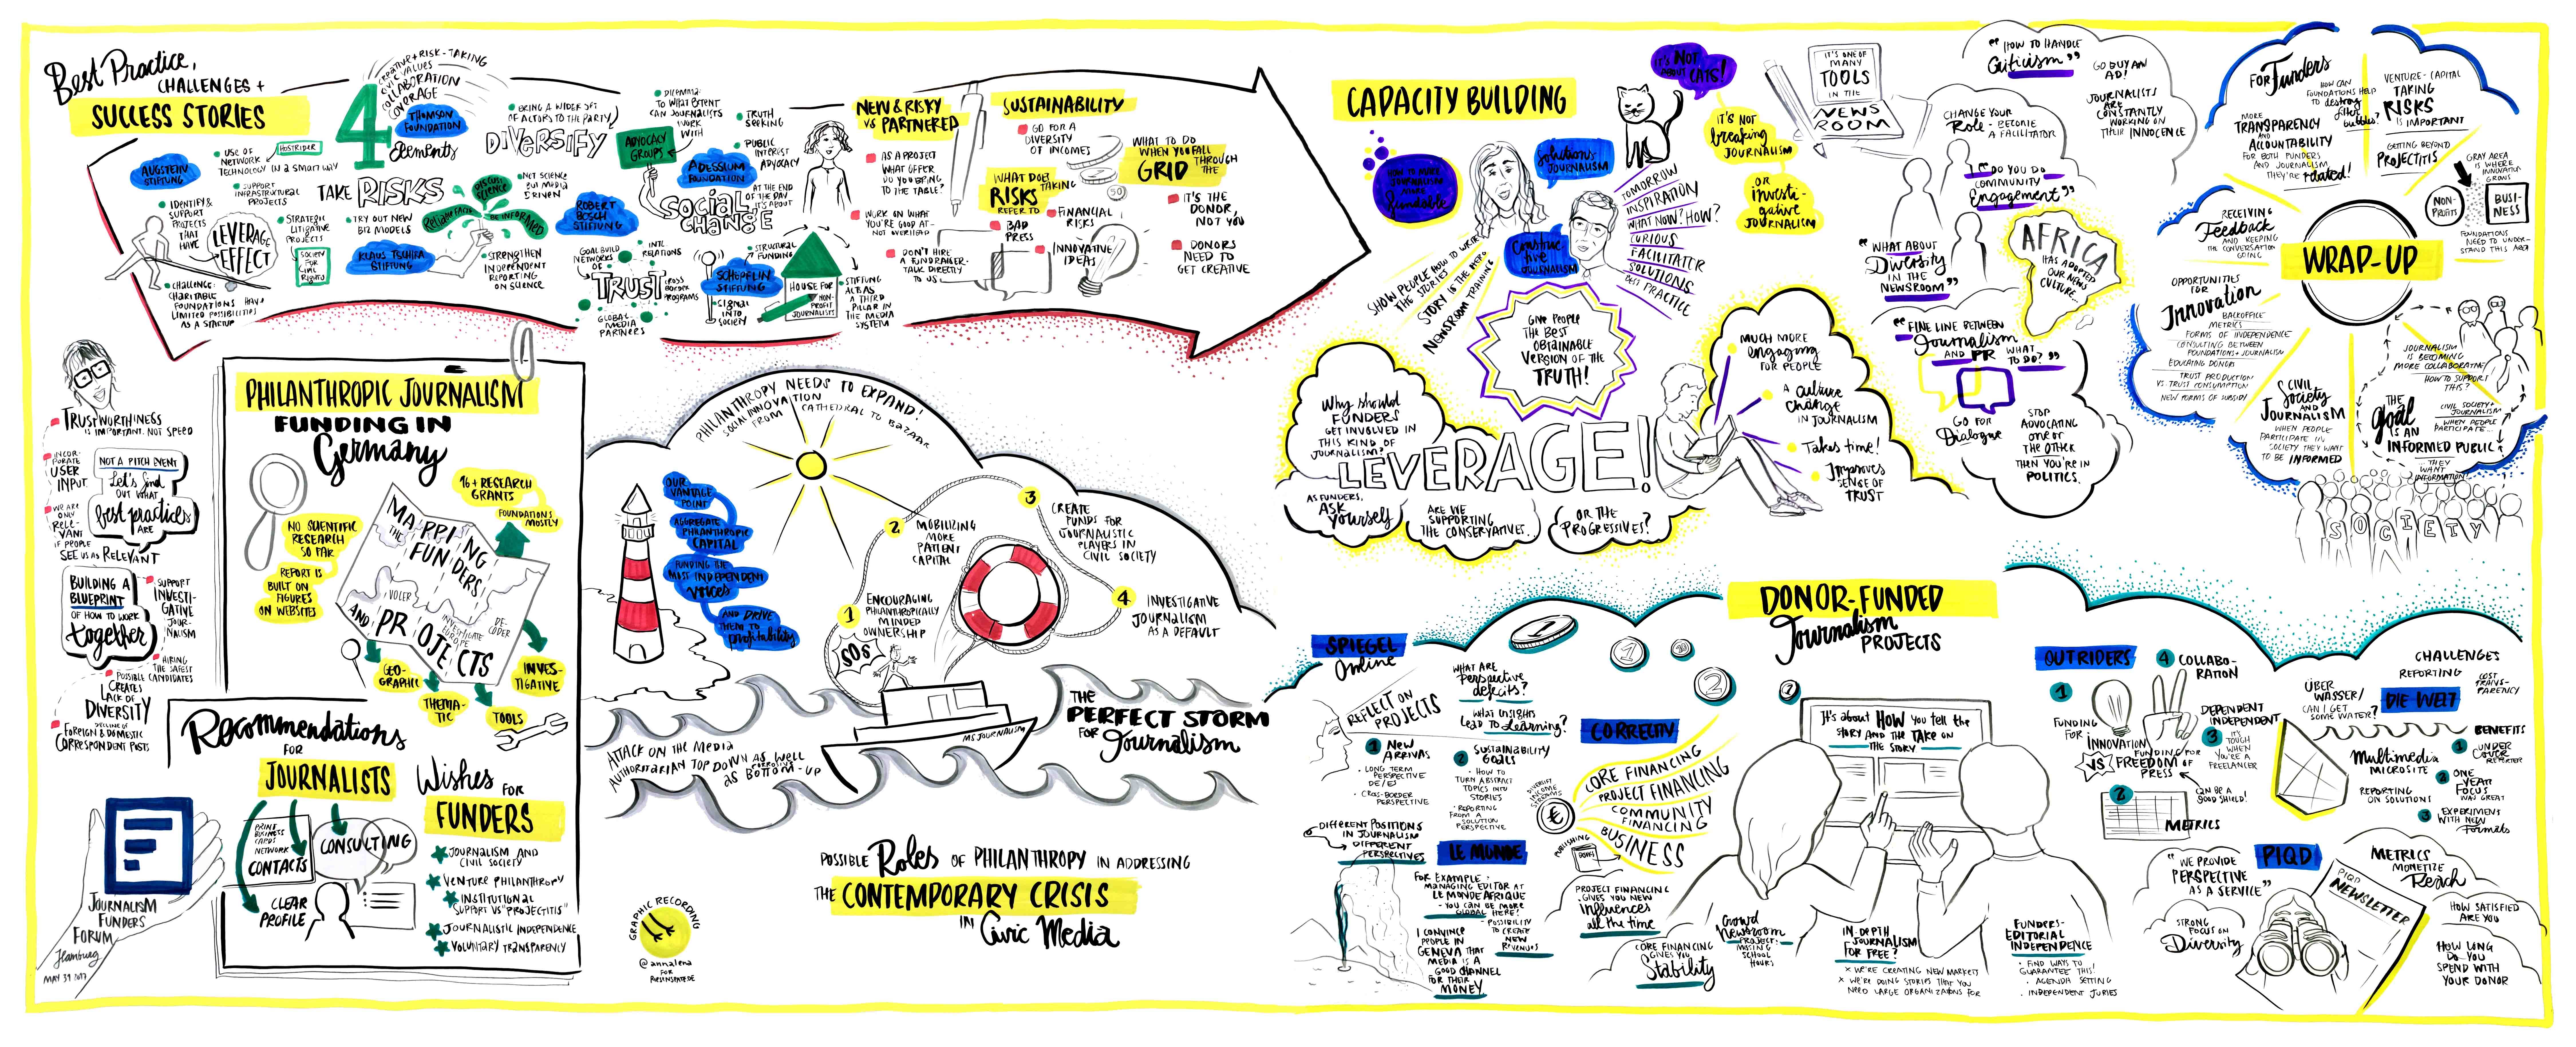 Best Practice,
CHALLENGES +
SUCCESS STORIES
AUGSTEIN
STIFTUNG
USE OF
NETWORK
HOSTRIDER
TECHNOLOGY IN A SMART WAY
SUPPORT
INFRASTRUCTURAL
PROJECTS
IDENTIFY &
SUPPORT
PROJECTS
THAT
HAVE
LEVERAGE
EFFECT
STRATEGIC
LITIGATIVE
PROJECTS
SOCIETY
FOR
CIVIL
RIGHTS
CHALLENGE:
CHARITABLE
FOUNDATIONS HAVE
LIMITED POSSIBILITIES
AS A STARTUP
4
Elements
CREATIVE + RISK-TAKING
CIVIC VALUES
COLLABORATION
COVERAGE
THOMSON
FOUNDATION
TAKE RISKS
TRY OUT NEW
BIZ MODELS
KLAUS TSCHIRA
STIFTUNG
DISCUSS
SCIENCE
RELIABLE FACTS
BE INFORMED
NOT SCIENCE
BUT MEDIA
DRIVEN
STRENGTHEN
INDEPENDENT
REPORTING
ON SCIENCE
BRING A WIDER SET
OF ACTORS TO THE PARTY
DIVERSIFY
ROBERT
BOSCH
STIFTUNG
GOAL BUILD
NETWORKS
OF
TRUST
INTL
RELATIONS
CROSS
BORDER
PROGRAMS
GLOBAL
MEDIA
PARTNERS
DILEMMA:
TO WHAT EXTENT
CAN JOURNALISTS
WORK
WITH
ADVOCACY
GROUPS
TRUTH
SEEKING
PUBLIC
INTEREST
ADVOCACY
ADESSIUM
FOUNDATION
AT THE END
OF THE DAY
IT'S ABOUT
SOCIAL
CHANGE
SCHÖPFLIN
STIFTUNG
SIGNAL
INTO
SOCIETY
STRUCTURAL
FUNDING
HOUSE FOR
NON-
PROFIT
JOURNALISTS
STIFTUNG
ALS
A THIRD
PILLAR IN
THE MEDIA
SYSTEM
NEW & RISKY
VS PARTNERED
AS A PROJECT
WHAT OFFER
DO YOU BRING
TO THE TABLE?
WORK ON WHAT
YOU'RE GOOD AT-
NOT OVERLOAD
DON'T HIRE
A FUNDRAISER-
TALK DIRECTLY
TO US
SUSTAINABILITY
GO FOR A
DIVERSITY
OF INCOMES
50
WHAT DOES
RISKS TAKING
REFER TO
BAD
PRESS
FINANCIAL
RISKS
INNOVATIVE
IDEAS
WHAT TO DO
WHEN YOU FALL
THROUGH
THE
GRID
IT'S THE
DONOR,
NOT YOU
DONORS
NEED TO
GET CREATIVE
TRUSTWORTHINESS
IS IMPORTANT, NOT SPEED
INCOR-
PORATE
USER
INPUT
NOT A PITCH EVENT
Let's find
OUT WHAT
best practices
ARE
WE ARE
ONLY
RELE-
VANT
IF PEOPLE
SEE US AS RELEVANT
BUILDING A
BLUEPRINT
OF HOW TO WORK
together
SUPPORT
INVESTI-
GATIVE
JOUR-
NALISM
HIRING
THE SAFEST
POSSIBLE CANDIDATES
CREATES
LACK OF
DIVERSITY
DECLINE OF
FOREIGN & DOMESTIC
CORRESPONDENT POSTS
JOURNALISM
FUNDERS
FORUM
Hamburg
MAY 31 2017
PHILANTHROPIC JOURNALISM
FUNDING IN
Germany
NO SCIENTIFIC
RESEARCH
SO FAR
REPORT IS
BUILT ON
FIGURES
ON WEBSITES
16+ RESEARCH
GRANTS
FOUNDATIONS
MOSTLY
MAPPING
THE
FUNDERS
AND PROJECTS
VOCER
INVESTIGATE
EUROPE
DE-
CODER
GEO-
GRAPHIC
THEMA-
TIC
TOOLS
INVES-
TIGATIVE
Recommendations
FOR
JOURNALISTS
PRINT
BUSINESS
CARDS
NETWORK
CONTACTS
CONSULTING
CLEAR
PROFILE
Wishes FOR
FUNDERS
JOURNALISM AND
CIVIL SOCIETY
VENTURE PHILANTHROPY
INSTITUTIONAL
SUPPORT VS "PROJECTITIS"
JOURNALISTIC INDEPENDENCE
VOLUNTARY TRANSPARENCY
PHILANTHROPY NEEDS TO EXPAND!
SOCIAL INNOVATION
FROM CATHEDRAL TO BAZAAR
OUR
VANTAGE
POINT
AGGREGATE
PHILANTHROPIC
CAPITAL
FUNDING THE
MOST INDEPENDENT
VOICES
AND DRIVE
THEM TO
profitability
1
ENCOURAGING
PHILANTHROPICALLY
MINDED
OWNERSHIP
2
MOBILIZING
MORE
PATIENT
CAPITAL
3
CREATE
FUNDS FOR
JOURNALISTIC
PLAYERS IN
CIVIL SOCIETY
4
INVESTIGATIVE
JOURNALISM
AS A DEFAULT
SOS
MS JOURNALISM
THE
PERFECT STORM
FOR Journalism
ATTACK ON THE MEDIA
AUTHORITARIAN TOP DOWN AS WELL
AS CORROSIVE BOTTOM-UP
POSSIBLE Roles OF PHILANTHROPY IN ADDRESSING
THE CONTEMPORARY CRISIS
IN Civic Media
GRAPHIC RECORDING
@annalena
FOR
CAPACITY BUILDING
HOW TO MAKE
JOURNALISM
MORE
fundable
SHOW PEOPLE HOW TO WRITE
THE STORIES
STORY IS THE HERO
NEWSROOM TRAINING
Solutions
JOURNALISM
Construc
tive
JOURNALISM
IT'S NOT
ABOUT CATS!
IT'S NOT
breaking
JOURNALISM
OR
investi-
gative
JOURNALISM
TOMORROW
INSPIRATION
WHAT NOW? HOW?
CURIOUS
FACILITATOR
SOLUTIONS
BEST PRACTICE
GIVE PEOPLE
THE BEST
OBTAINABLE
VERSION OF THE
TRUTH!
Why should
FUNDERS
GET INVOLVED IN
THIS KIND OF
JOURNALISM?
LEVERAGE!
AS FUNDERS,
ASK
yourself
ARE WE
SUPPORTING
THE CONSERVATIVES..
OR THE
PROGRESSIVES?
MUCH MORE
engaging
FOR PEOPLE
A culture
change
IN JOURNALISM
Takes time!
Improves
SENSE OF
TRUST
IT'S ONE OF
MANY
TOOLS
IN THE
NEWS
ROOM
"HOW TO HANDLE
Criticism"
GO BUY AN
AD!
JOURNALISTS
ARE
CONSTANTLY
WORKING ON
THEIR INNOCENCE
CHANGE YOUR
Role - BECOME
A FACILITATOR
"DO YOU DO
COMMUNITY
Engagement"
"WHAT ABOUT
Diversity
IN THE
NEWSROOM"
AFRICA
HAS ADOPTED
OUR NEWS
CULTURE...
"FINE LINE BETWEEN
Journalism
AND PR WHAT
TO DO?"
GO FOR
Dialogue
STOP
ADVOCATING
ONE OR
THE OTHER
THEN YOU'RE IN
POLITICS.
FOR Funders
HOW CAN
FOUNDATIONS HELP
TO destroy
filter
bubbles?
VENTURE-CAPITAL
TAKING
RISKS
IS IMPORTANT
MORE
TRANSPARENCY
AND
ACCOUNTABILITY
FOR BOTH FUNDERS
AND JOURNALISM,
THEY'RE related!
GETTING BEYOND
PROJECTITIS
GRAY AREA
IS WHERE
INNOVATION
GROWS
NON-
PROFITS
BUSI-
NESS
FOUNDATIONS
NEED TO UNDER-
STAND THIS AREA
RECEIVING
Feedback
AND KEEPING
THE CONVERSATION
GOING
WRAP-UP
OPPORTUNITIES
FOR
Innovation
BACKOFFICE
METRICS
FORMS OF INDEPENDENCE
CONSULTING BETWEEN
FOUNDATIONS + JOURNALISM
EDUCATING DONORS
TRUST PRODUCTION
VS. TRUST CONSUMPTION
NEW FORMS OF SUBSIDY
CIVIL
Society
AND
JOURNALISM
WHEN PEOPLE
PARTICIPATE IN
SOCIETY THEY WANT
TO BE INFORMED
JOURNALISM
IS BECOMING
MORE COLLABORATIVE
HOW TO SUPPORT
THIS?
THE
goal
IS AN
INFORMED PUBLIC
CIVIL SOCIETY +
JOURNALISM
WHEN PEOPLE
PARTICIPATE...
...THEY
WANT
INFORMATION!
SOCIETY
DONOR-FUNDED
Journalism
PROJECTS
SPIEGEL
Online
REFLECT ON
PROJECTS
WHAT ARE
Perspective
deficits?
WHAT INSIGHTS
LEAD TO Learning?
1 NEW
ARRIVALS
LONG TERM
PERSPECTIVE
DE/ES
CROSS-BORDER
PERSPECTIVE
2 SUSTAINABILITY
GOALS
HOW TO
TURN ABSTRACT
TOPICS INTO
STORIES
REPORTING
FROM A
SOLUTION
PERSPECTIVE
DIFFERENT POSITIONS
IN JOURNALISM
DIFFERENT
PERSPECTIVES
LE MONDE
FOR EXAMPLE:
MANAGING EDITOR AT
LE MONDE AFRIQUE
- YOU CAN BE MORE
GLOBAL HERE!
POSSIBILITY
TO CREATE
NEW
REVENUES
I CONVINCE
PEOPLE IN
GENEVA THAT
MEDIA IS A
GOOD CHANNEL
FOR THEIR
MONEY
1
1
2
1
CORRECTIV
DIVERSIFY
INCOME
STREAMS
€
CORE FINANCING
PROJECT FINANCING
COMMUNITY
FINANCING
BUSINESS
PUBLISHING
BOOKS
PROJECT FINANCING
GIVES YOU NEW
influences
all the time
CORE FINANCING
GIVES YOU
Stability
Crowd
Newsroom
PROJECT:
MISSING
SCHOOL
HOURS
It's about HOW you tell the
STORY AND THE TAKE ON
THE STORY
IN DEPTH
JOURNALISM
FOR FREE?
x WE'RE CREATING NEW MARKETS
x WE'RE DOING STORIES THAT YOU
NEED LARGE ORGANIZATIONS FOR
FUNDERS-
EDITORIAL
INDEPENDENCE
FIND WAYS TO
GUARANTEE THIS!
AGENDA SETTING
INDEPENDENT JURIES
OUTRIDERS
1
FUNDING
FOR
INNOVATION
VS
4 COLLABO-
RATION
DEPENDENT
INDEPENDENT
3
IT'S
TOUGH
WHEN
YOU'RE A
FREELANCER
FUNDING FOR
FREEDOM OF
PRESS
CAN BE A
GOOD SHIELD!
2
METRICS
CHALLENGES
REPORTING
COST
TRANS-
PARENCY
ÜBER
WASSER/
CAN I GET
SOME WATER?
DIE WELT
Multimedia
MICROSITE
REPORTING
ON SOLUTIONS
BENEFITS
1 UNDER
COVER
REPORTER
2 ONE
YEAR
FOCUS
WAS GREAT
3 EXPERIMENT
WITH NEW
Formats
"WE PROVIDE
PERSPECTIVE
AS A SERVICE"
PIQD
STRONG
FOCUS ON
Diversity
PIQD
NEWSLETTER
METRICS
MONETIZE
Reach
HOW SATISFIED
ARE YOU
HOW LONG
DO YOU
SPEND WITH
YOUR DONOR